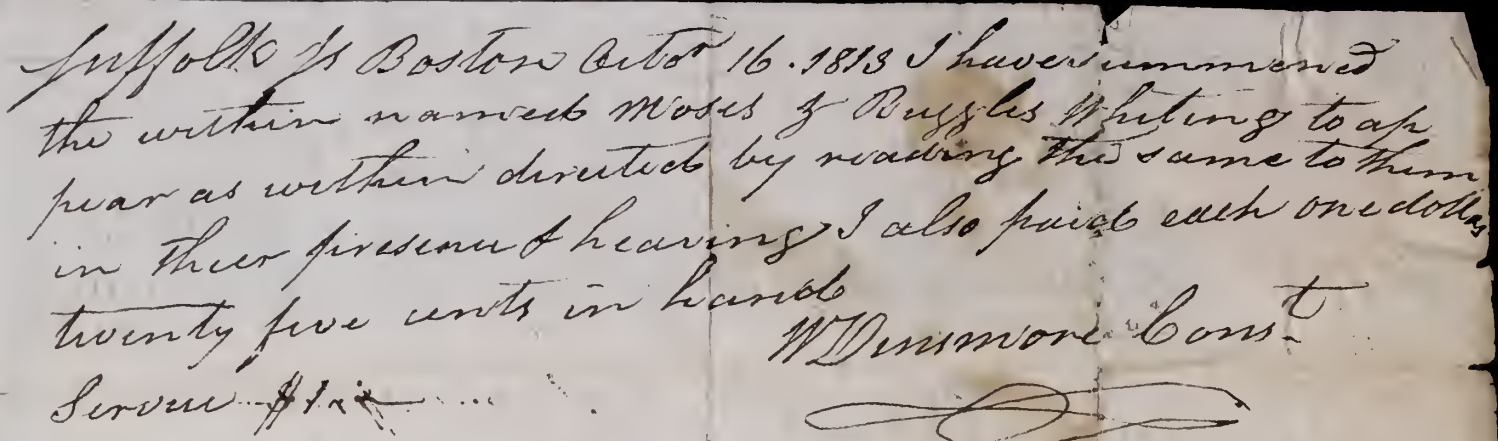 Suffolk Ss Boston Octor 16. 1813 I have summoned
the within named Moses & Ruggles Whiting to ap
pear as within directed by reading the same to them
in their presence & hearing I also paid each one dollar
twenty five cents in hand
W Dinsmore Const
Service $1